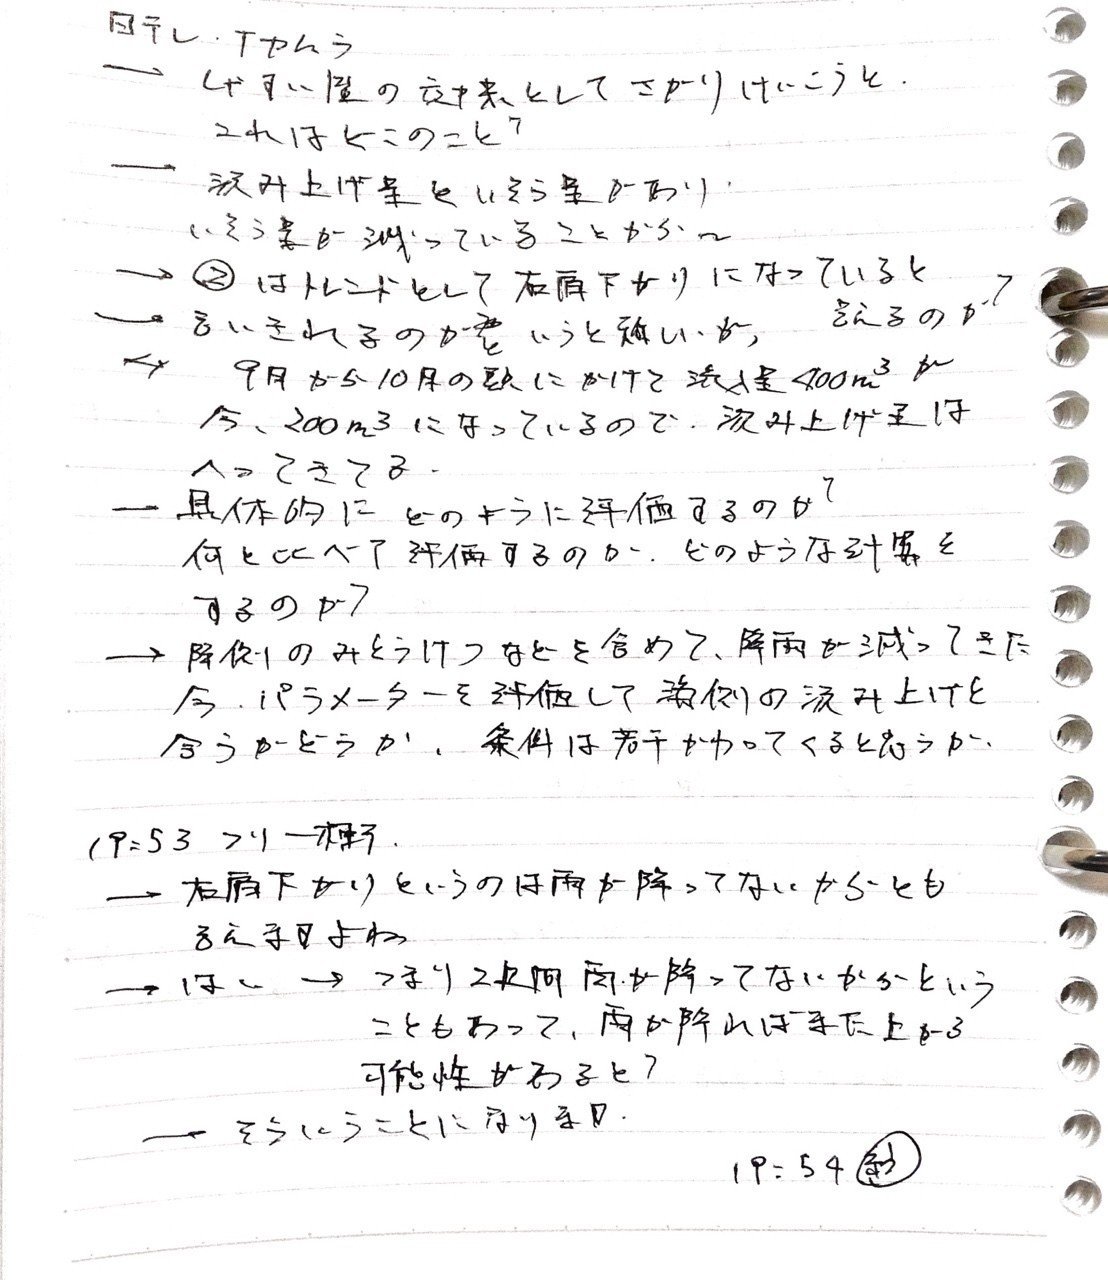 日テレ・
→ しげすい置の出来としてさがりけいこうと.
これはどこのこと?
→ 汲み上げ量といそう量があり.
いそう量が減っていることから〜
→ ②はトレンドとして右肩下がりになっていると
言えるのか?
→ 言いきれるのかというと難しいが,
9月から10月の にかけて 400m³が
今、200m³になっているので.汲み上げ量は
へってきてる.
— 具体的にどのように評価するのか?
何と比べて評価するのか.どのような計算を
するのか?
→ 降側のみとうけつなどを含めて、降雨が減ってきた
今.パラメーターを評価して海側の汲み上げと
合うかどうか.条件は若干かわってくると思うが.
19:53 フリー
→ 右肩下がりというのは雨が降ってないからとも
言えますよね
→ はい → つまり2週間雨が降ってないからという
こともあって、雨が降ればまた上がる
可能性があると?
→ そういうことになります.
19:54 終